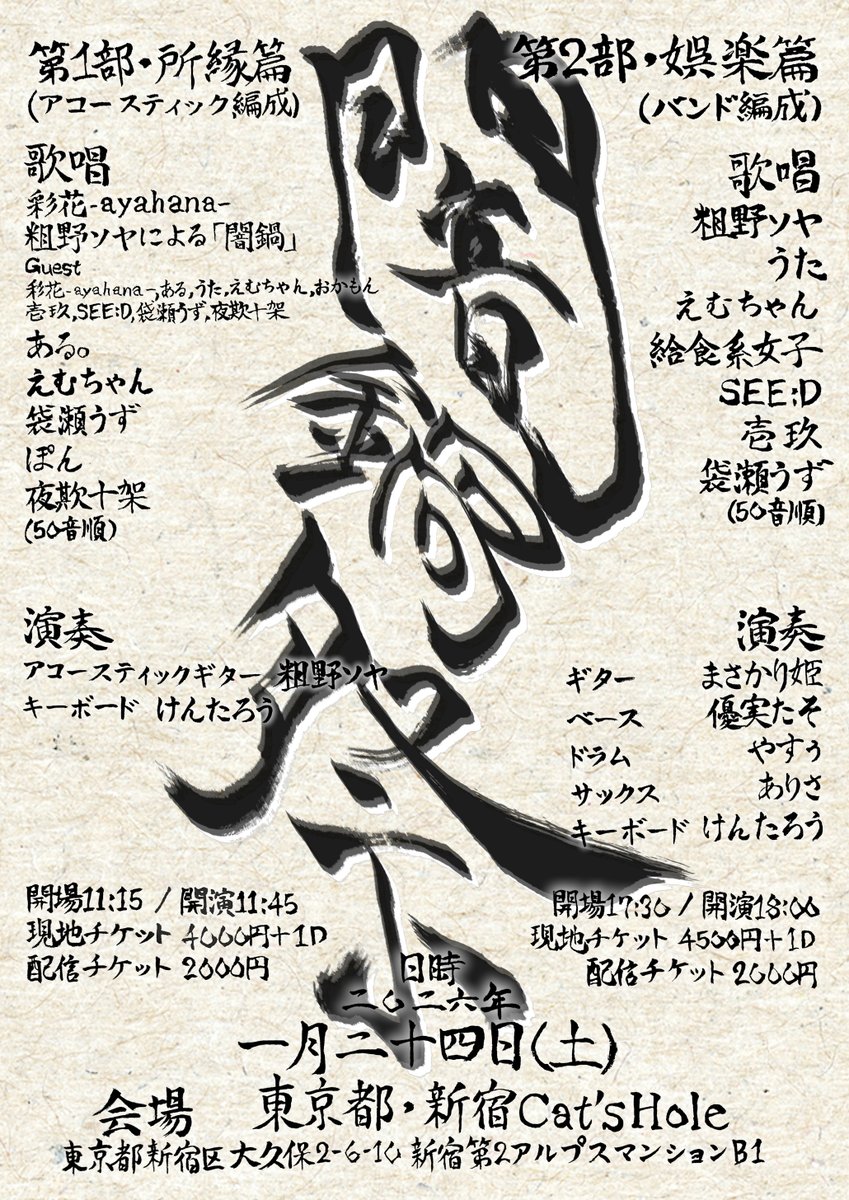 闇鍋祭
第1部・所縁篇
(アコースティック編成)
歌唱
彩花-ayahana-
粗野ソヤによる「闇鍋」
Guest
彩花-ayahana-,ある,うた,えむちゃん,おかもん
壱玖,SEE:D,袋瀬うず,夜欺十架
ある。
えむちゃん
袋瀬うず
ぽん
夜欺十架
(50音順)
演奏
アコースティックギター 粗野ソヤ
キーボード けんたろう
開場11:15 / 開演11:45
現地チケット 4000円+1D
配信チケット 2000円
第2部・娯楽篇
(バンド編成)
歌唱
粗野ソヤ
うた
えむちゃん
給食系女子
SEE:D
壱玖
袋瀬うず
(50音順)
演奏
ギター まさかり姫
ベース 優実たそ
ドラム やすぅ
サックス ありさ
キーボード けんたろう
開場17:30 / 開演18:00
現地チケット 4500円+1D
配信チケット 2000円
日時
二〇二六年
一月二十四日(土)
会場 東京都・新宿Cat'sHole
東京都新宿区大久保2-6-10 新宿第2アルプスマンションB1